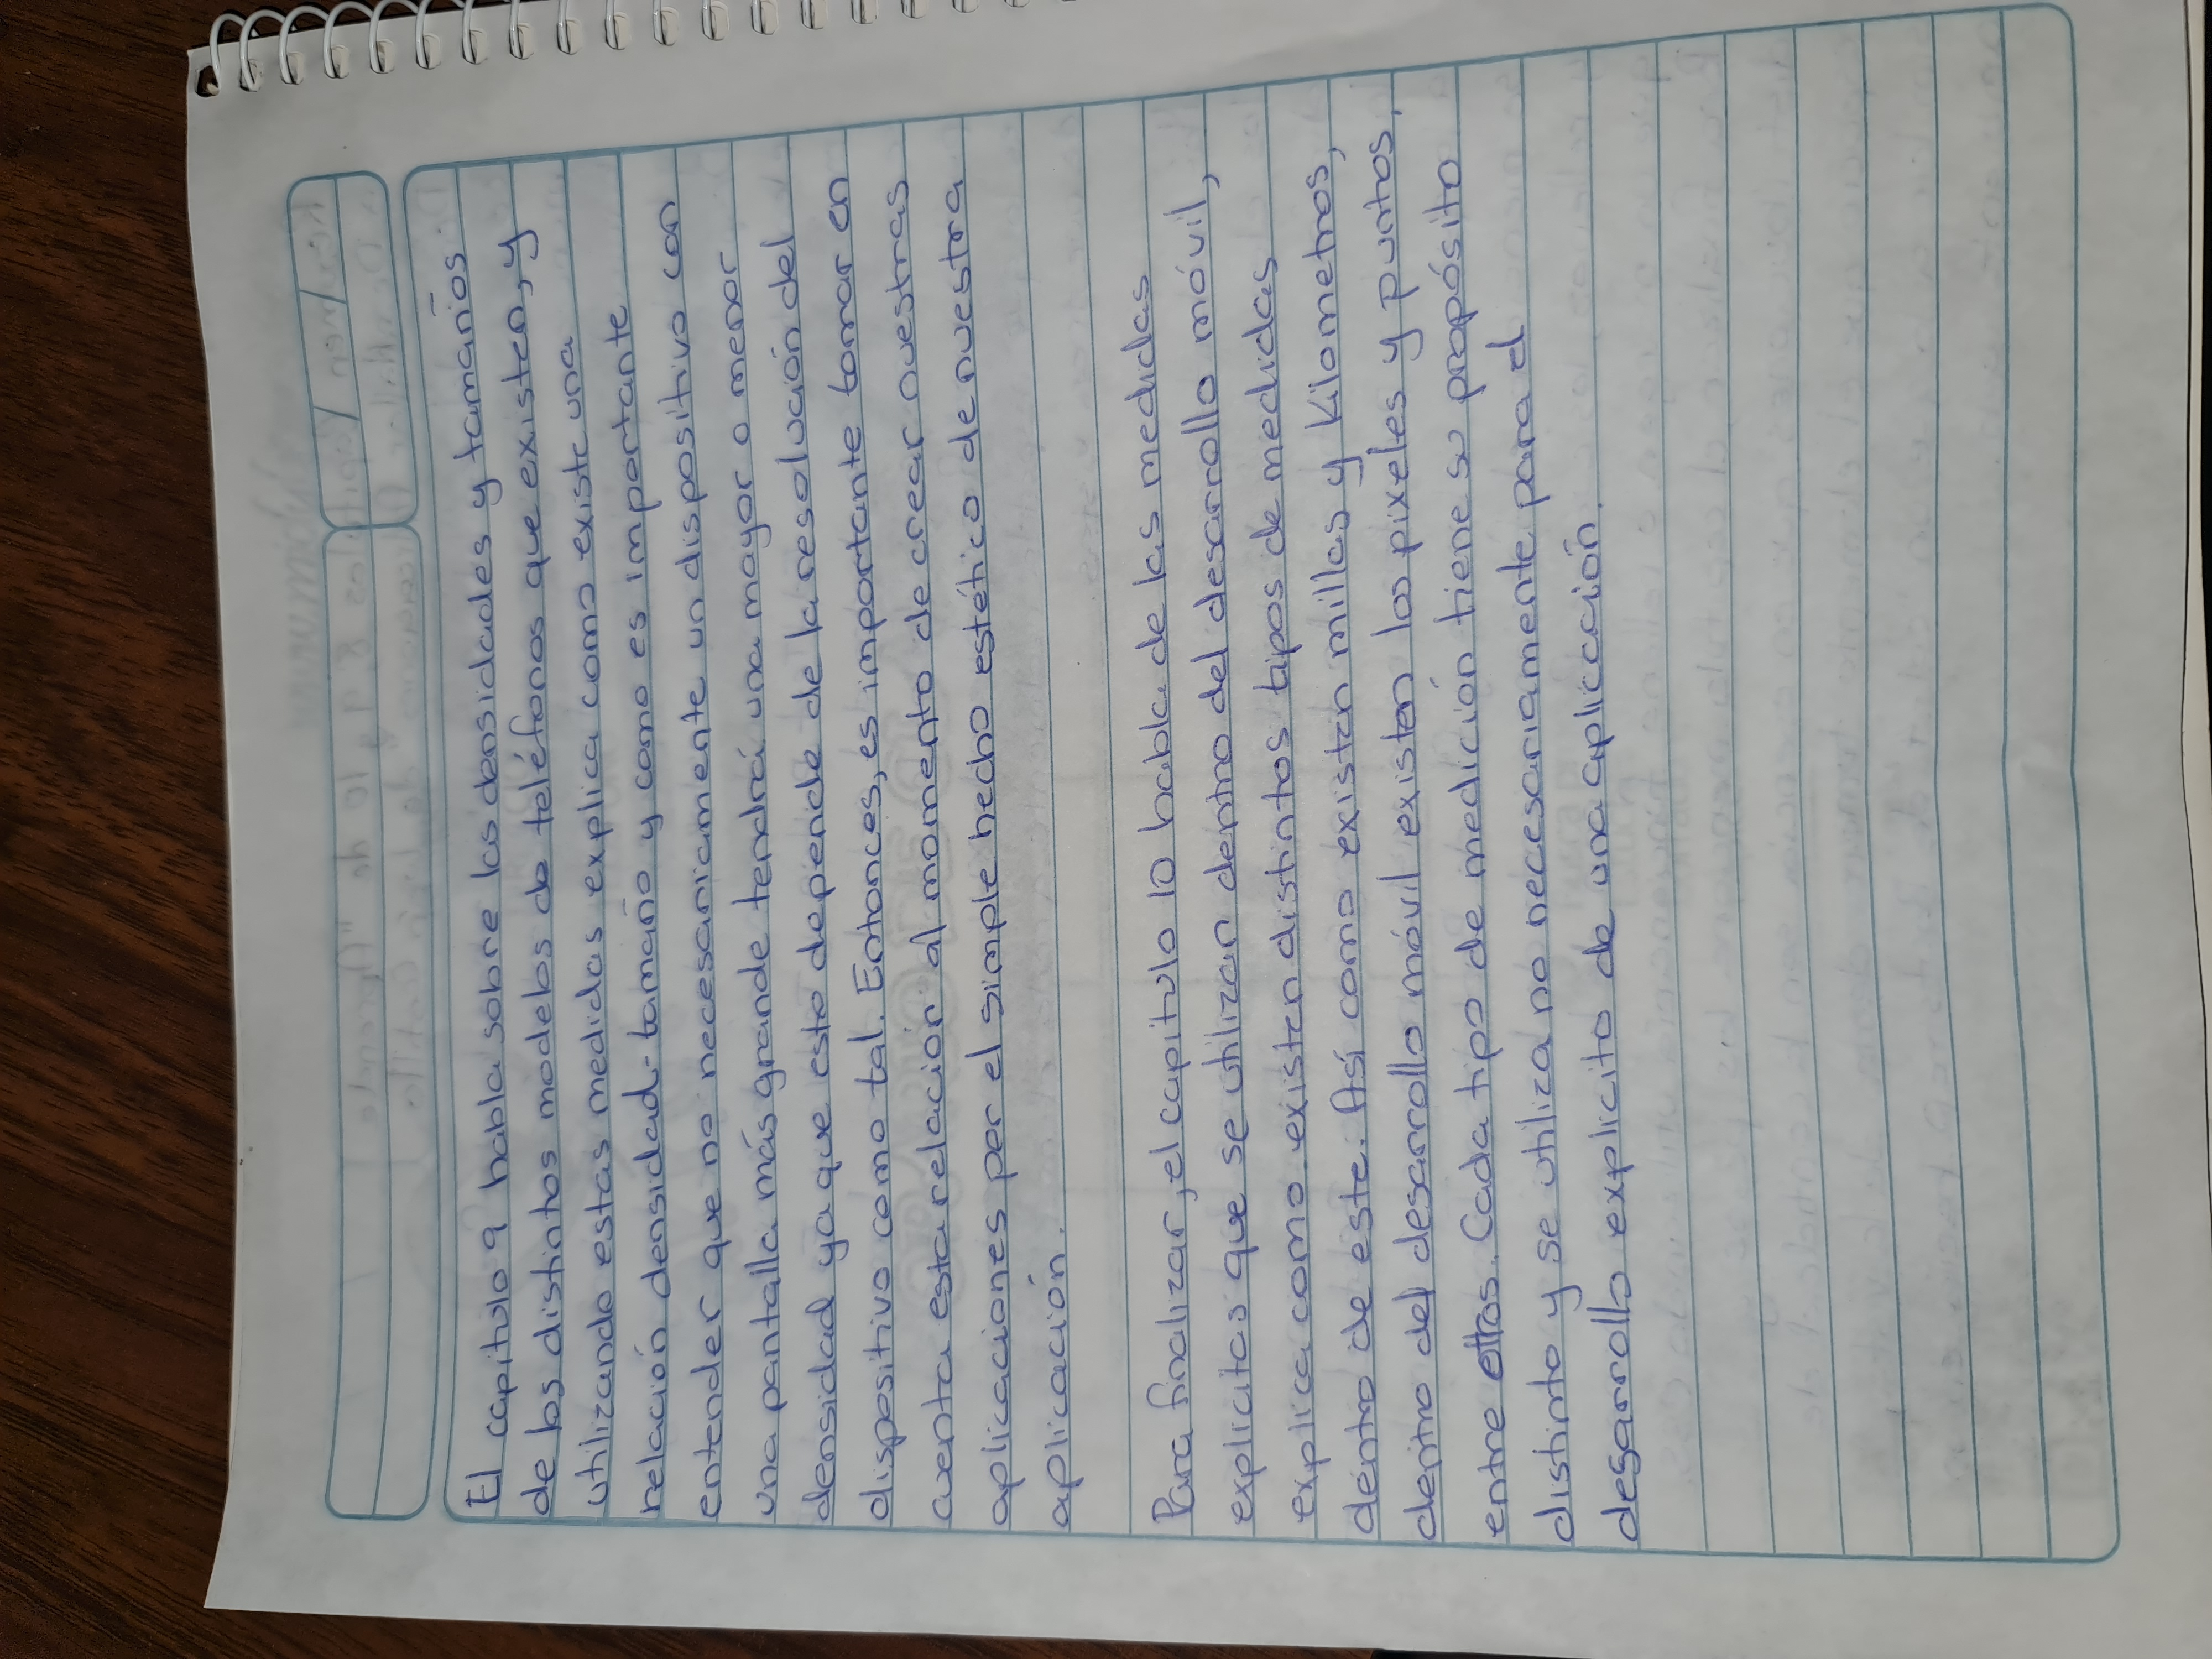 El capitulo 9 habla sobre las densidades y tamaños
de los distintos modelos de teléfonos que existen, y
utilizando estas medidas explica como existe una
relación densidad-tamaño y como es importante
entender que no necesariamente un dispositivo con
una pantalla más grande tendrá una mayor o menor
densidad ya que esto depende de la resolución del
dispositivo como tal. Entonces, es importante tomar en
cuenta esta relación al momento de crear nuestras
aplicaciones por el simple hecho estético de nuestra
aplicación.
Para finalizar, el capitulo 10 habla de las medidas
explicitas que se utilizan dentro del desarrollo móvil,
explica como existen distintos tipos de medidas
dentro de este. Así como existen millas y Kilometros,
dentro del desarrollo móvil existen los pixeles y puntos,
entre otros. Cada tipo de medición tiene su propósito
distinto y se utiliza no necesariamente para el
desarrollo explicito de una aplicación.